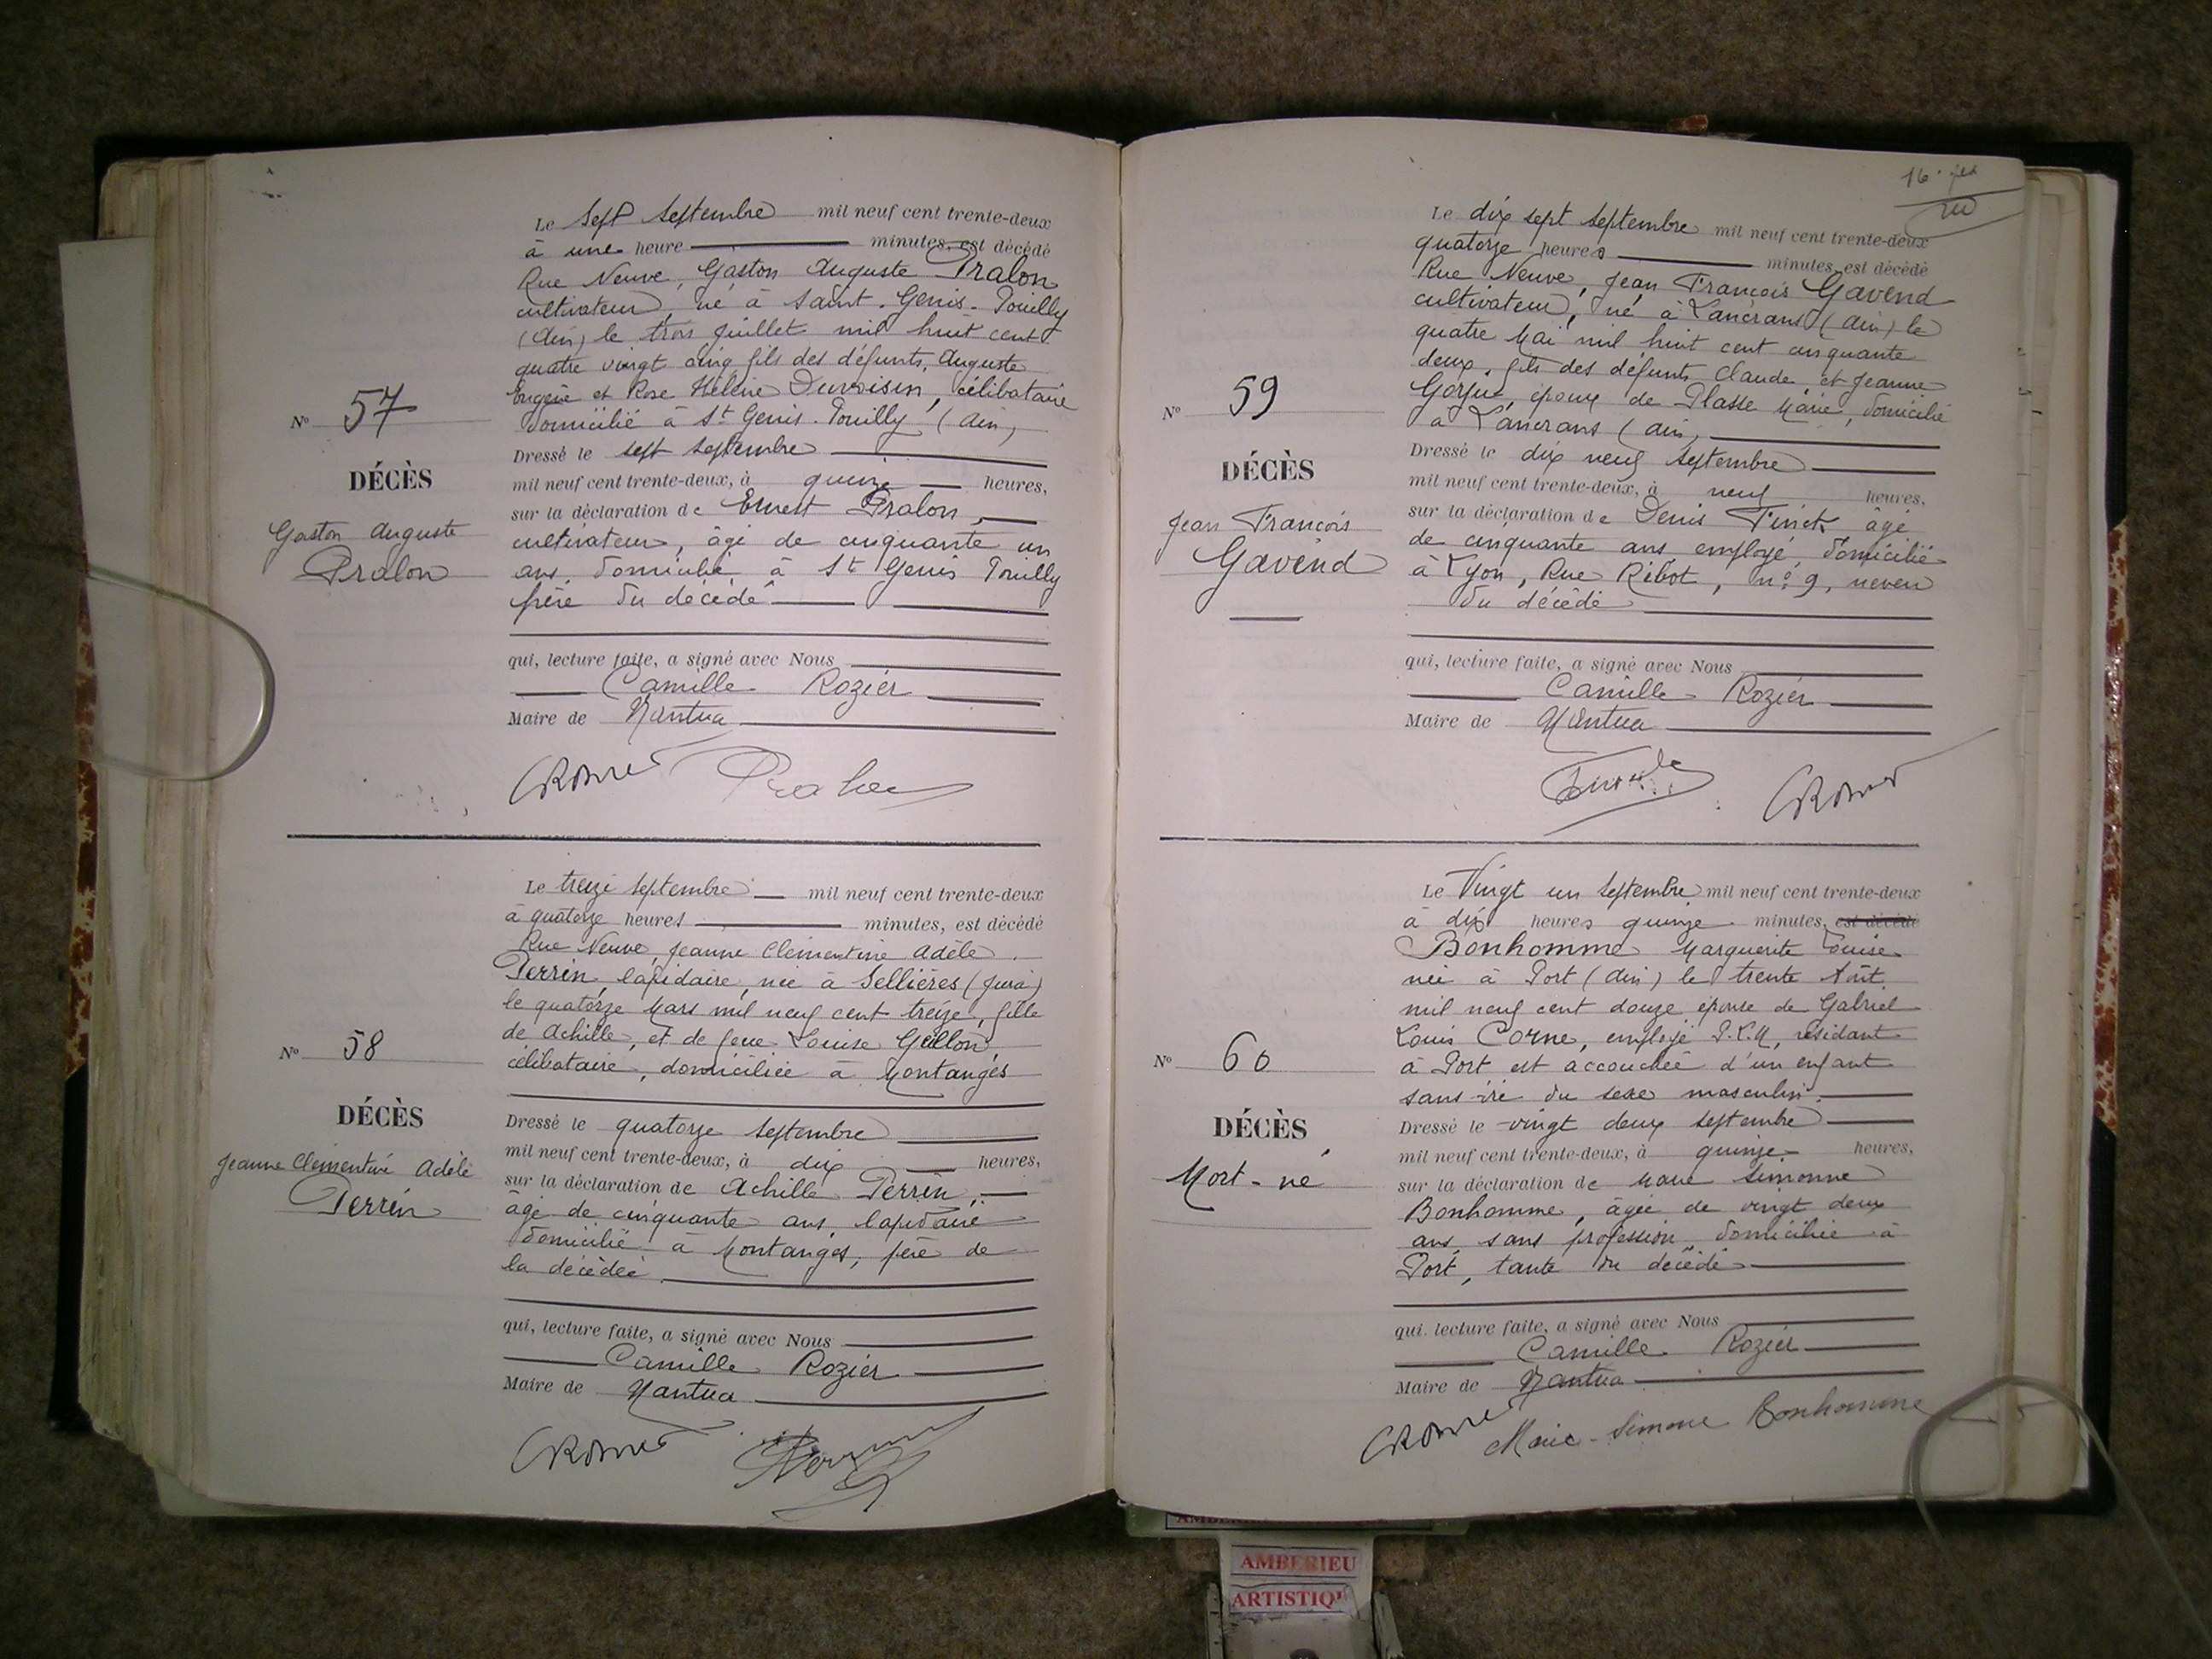 Le sept septembre mil neuf cent trente-deux
à une heure minutes, est décédé
Rue Neuve, Gaston Auguste Pralon
cultivateur, né à Saint-Genis-Pouilly
(Ain) le trois juillet mil huit cent
quatre vingt cinq fils des défunts, Auguste
Eugène et Rose Hélène Duvoisin, célibataire
domicilié à St Genis-Pouilly (Ain)
Dressé le sept septembre
mil neuf cent trente-deux, à quinze heures,
sur la déclaration de Ernest Pralon,
cultivateur, âgé de cinquante un
ans, domicilié à St Genis Pouilly
frère du décédé
qui, lecture faite, a signé avec Nous
Camille Rozier
Maire de Nantua
No 57
DÉCÈS
Gaston Auguste
Pralon
Le treize septembre mil neuf cent trente-deux
à quatorze heures minutes, est décédé
Rue Neuve, Jeanne Clémentine Adèle
Perrin, lapidaire, née à Sellières (Jura)
le quatorze Mars mil neuf cent treize, fille
de Achille, et de feue Louise
célibataire, domiciliée à Montanges
Dressé le quatorze septembre
mil neuf cent trente-deux, à dix heures,
sur la déclaration de Achille Perrin,
âgé de cinquante ans, lapidaire
domicilié à Montanges, père de
la décédée
qui, lecture faite, a signé avec Nous
Camille Rozier
Maire de Nantua
No 58
DÉCÈS
Jeanne Clémentine Adèle
Perrin
Le dix sept septembre mil neuf cent trente-deux
quatorze heures minutes, est décédé
Rue Neuve, Jean François Gavend
cultivateur, né à Lancrans (Ain) le
quatre Mai mil huit cent cinquante
deux, fils des défunts Claude et Jeanne
époux de Plasse Marie, domicilié
à Lancrans (Ain)
Dressé le dix neuf septembre
mil neuf cent trente-deux, à neuf heures,
sur la déclaration de Denis Tinet, âgé
de cinquante ans employé, domicilié
à Lyon, Rue Ribot, no 9, neveu
du décédé
qui, lecture faite, a signé avec Nous
Camille Rozier
Maire de Nantua
No 59
DÉCÈS
Jean François
Gavend
Le Vingt un septembre mil neuf cent trente-deux
à dix heures quinze minutes, est décédé
Bonhomme Marguerite Louise
née à Port (Ain) le trente Août
mil neuf cent douze épouse de Gabriel
Louis Corne, employé P.L.M, résidant
à Port est accouchée d'un enfant
sans vie du sexe masculin.
Dressé le vingt deux septembre
mil neuf cent trente-deux, à quinze heures,
sur la déclaration de Marie Simonne
Bonhomme, âgée de vingt deux
ans, sans profession domiciliée à
Port, tante du décédé
qui, lecture faite, a signé avec Nous
Camille Rozier
Maire de Nantua
Marie-Simone Bonhomme
No 60
DÉCÈS
Mort-né
AMBERIEU
ARTISTIQU